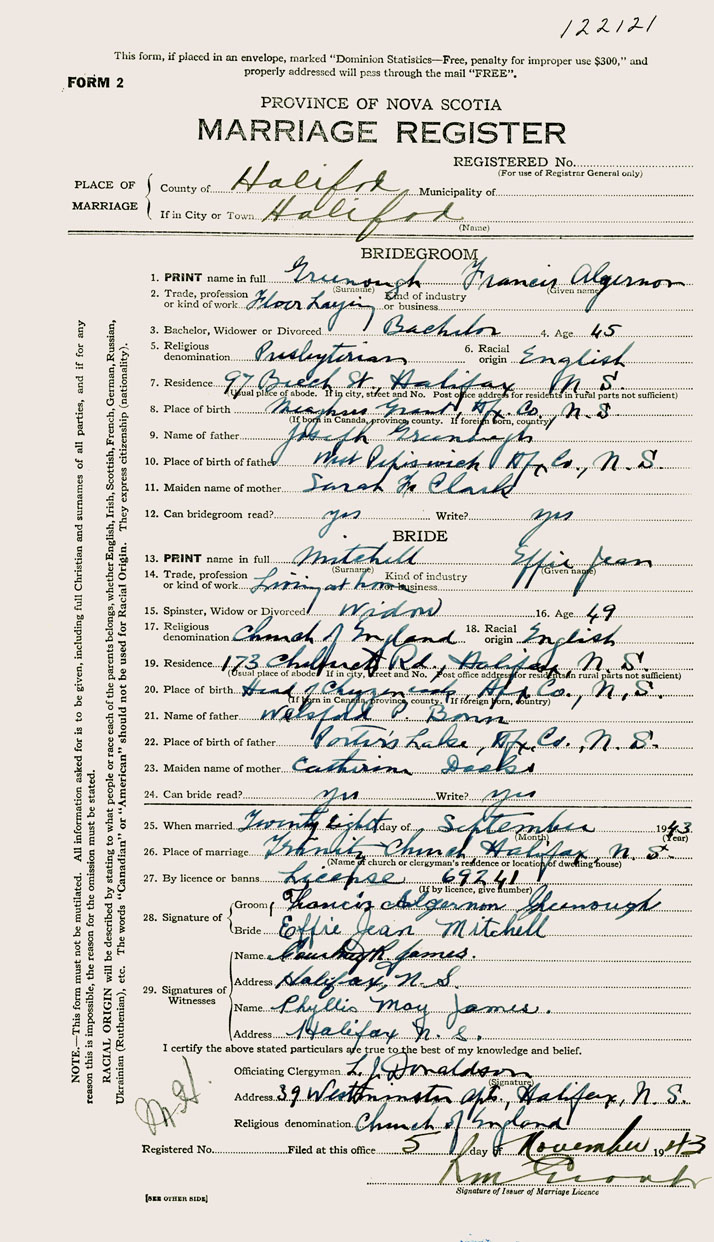 122121
This form, if placed in an envelope, marked "Dominion Statistics—Free, penalty for improper use $300," and
properly addressed will pass through the mail "FREE".
FORM 2
PROVINCE OF NOVA SCOTIA
MARRIAGE REGISTER
REGISTERED No.
(For use of Registrar General only)
PLACE OF MARRIAGE
County of Halifax Municipality of
If in City or Town Halifax
(Name)
BRIDEGROOM
1. PRINT name in full Greenough Francis Algernon
(Surname) (Given name)
2. Trade, profession or kind of work Floor Laying Kind of industry or business
3. Bachelor, Widower or Divorced Bachelor 4. Age 45
5. Religious denomination Presbyterian 6. Racial origin English
7. Residence 97 Beech St., Halifax N. S.
(Usual place of abode. If in city, street and No. Post office address for residents in rural parts not sufficient)
8. Place of birth Grant, Hfx. Co., N. S.
(If born in Canada, province, county. If foreign born, country)
9. Name of father Joseph Greenough
10. Place of birth of father West Hfx Co., N. S.
11. Maiden name of mother Sarah Clark
12. Can bridegroom read? yes Write? yes
BRIDE
13. PRINT name in full Mitchell Effie Jean
(Surname) (Given name)
14. Trade, profession or kind of work Living at home Kind of industry or business
15. Spinster, Widow or Divorced Widow 16. Age 49
17. Religious denomination Church of England 18. Racial origin English
19. Residence 173 Rd., Halifax, N. S.
(Usual place of abode. If in city, street and No. Post office address for residents in rural parts not sufficient)
20. Place of birth Head of Chezzetcook, Hfx Co., N. S.
(If born in Canada, province, county. If foreign born, country)
21. Name of father P. Bonn
22. Place of birth of father Porter's Lake, Hfx. Co., N. S.
23. Maiden name of mother Catherine
24. Can bride read? yes Write? yes
25. When married Twenty eight day of September 1943
(Month) (Year)
26. Place of marriage Trinity Church Halifax, N. S.
(Name of church or clergyman's residence or location of dwelling house)
27. By licence or banns License 69241
(If by licence, give number)
28. Signature of
Groom Francis Algernon Greenough
Bride Effie Jean Mitchell
29. Signatures of Witnesses
Name R. James.
Address Halifax, N. S.
Name Phyllis May James.
Address Halifax N. S.
I certify the above stated particulars are true to the best of my knowledge and belief.
Officiating Clergyman L. J. Donaldson
(Signature)
Address 39 Westminster Apts., Halifax, N. S.
Religious denomination Church of England
Registered No. Filed at this office 5 day of November 1943
Signature of Issuer of Marriage Licence
[SEE OTHER SIDE]
NOTE.—This form must not be mutilated. All information asked for is to be given, including full Christian and surnames of all parties, and if for any
reason this is impossible, the reason for the omission must be stated.
RACIAL ORIGIN will be described by stating to what people or race each of the parents belongs, whether English, Irish, Scottish, French, German, Russian,
Ukrainian (Ruthenian), etc. The words "Canadian" or "American" should not be used for Racial Origin. They express citizenship (nationality).